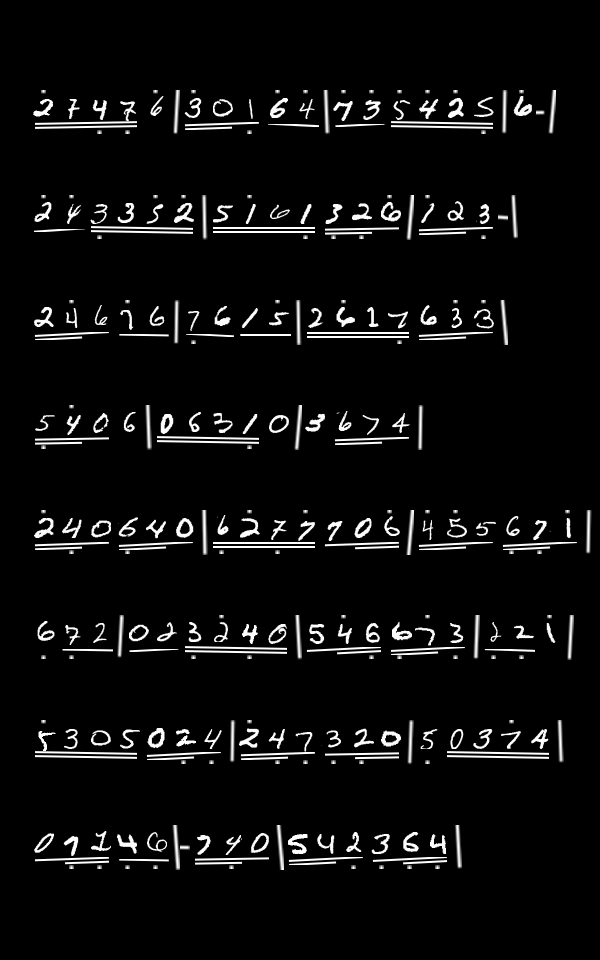 2 7 4 7 6 | 3 0 1 6 4 | 7 3 5 4 2 5 | 6 - |
2 4 3 3 5 2 | 5 1 6 1 3 2 6 | 1 2 3 - |
2 4 6 7 6 | 7 6 1 5 | 2 6 1 7 6 3 3 |
5 4 0 6 | 0 6 3 1 0 | 3 6 7 4 |
2 4 0 6 4 0 | 6 2 7 7 7 0 6 | 4 5 5 6 7 1 |
6 7 2 | 0 2 3 2 4 0 | 5 4 6 6 7 3 | 2 2 1 |
5 3 0 5 0 2 4 | 2 4 7 3 2 0 | 5 0 3 7 4 |
0 7 1 4 6 | - 7 4 0 | 5 4 2 3 6 4 |